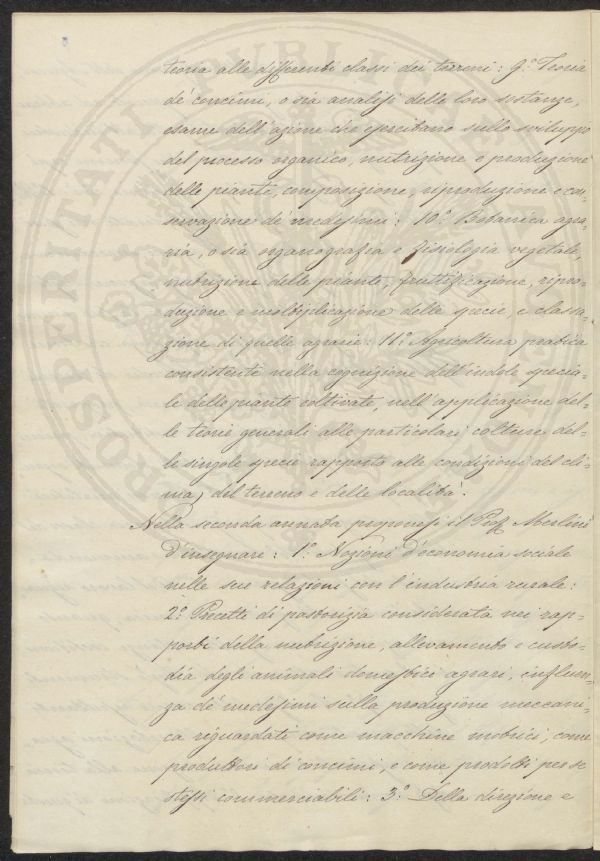 teoria alle differenti classi dei terreni: 9.° Teoria
de' concimi, o sia analisi delle loro sostanze,
esame dell'azione che esercitano sullo sviluppo
del processo organico, nutrizione e produzione
delle piante, composizione, riproduzione e con=
servazione de' medesimi: 10.° Botanica agra=
ria, o sia organografia e fisiologia vegetale,
nutrizione delle piante, fruttificazione, ripro=
duzione e moltiplicazione delle specie, e classa=
zione di quelle agrarie: 11.° Agricoltura pratica
consistente nella cognizione dell'indole specia=
le delle piante coltivate, nell'applicazione del=
le teorie generali alle particolari colture del=
le singole specie rapporto alle condizioni del cli=
ma, del terreno e delle località.
Nella seconda annata proponesi il Prof. Merlini
d'insegnari: 1.° Nozioni d'economia sociale
nelle sue relazioni con l'industria rurale:
2.° Precetti di pastorizia considerata nei rap=
porti della nutrizione, allevamento e custo=
dia degli animali domestici agrari, influen=
za de' medesimi sulla produzione meccani=
ca riguardati come macchine motrici, come
produttori di concimi, e come prodotti per se
stessi commerciabili: 3.° Della direzione e
PROSPERITATI PUBLICAE